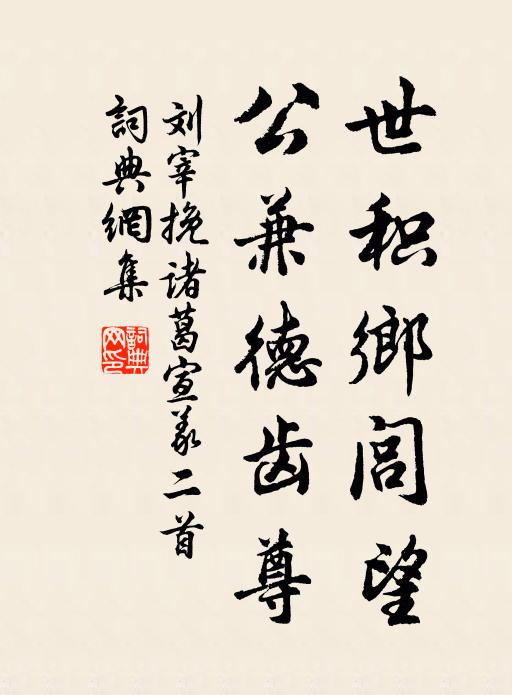 世积鄉闾望
公兼德齿尊
刘宰挽诸葛宣义二首
詞典網集
詞典
网印